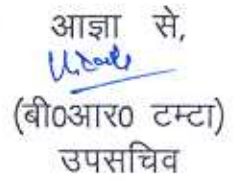 आज्ञा से,
(बी0आर0 टम्टा)
उपसचिव